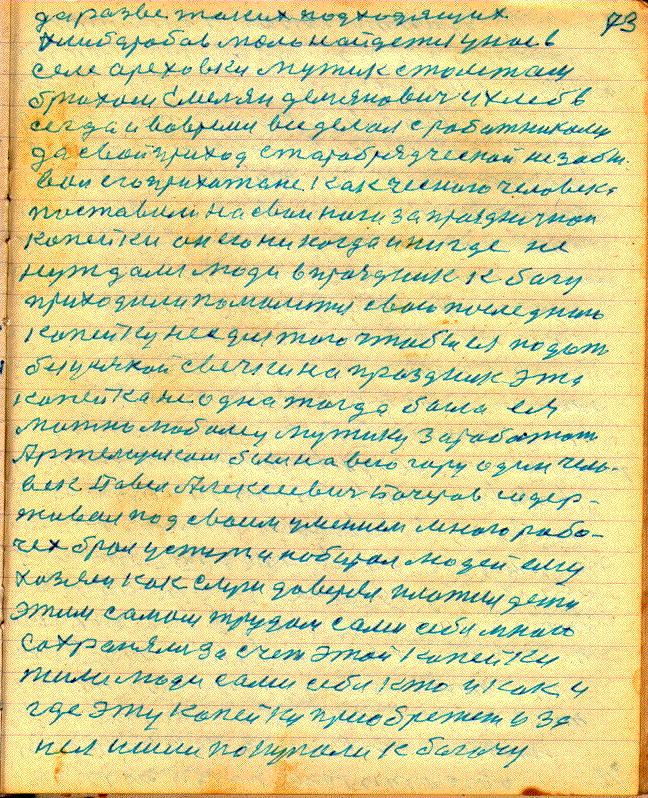 73
да разве таких подходящих
хлибаробав мало найдетя унас в
селе ореховки мужик стольтам
брюхом Емелян демянович и хлеб в
сегда и вовреми вседелал с работниками
да свой приход старобрядческой незабы-
вал его прихожане как чесного человека
поставили на свои ноги за праздничнои
копейки он его никогда и нигде не
нуждали люди в праздник к богу
приходили помолится свою последнию
копейку не для того чтобы ея подать
без всякой свечки на праздник эта
копейка не одна тогда была ея
можно любому мужику заработат
Артельщикам были на всю гору один чело-
век Павел Алексеевич Бочеров
живал под своим умением много рабо-
чех брал и набирал людей ему
хозяева как доверял платил дети
этим самым трудом сами себи много
сохраняли за счет этой копейки
жили люди сами себя кто и как и
где эту копейку приобретет и за
нея покупали к багочу